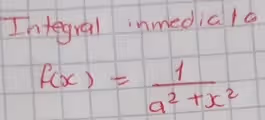 Integral inmediata
f(x) = 1 / (a² + x²)